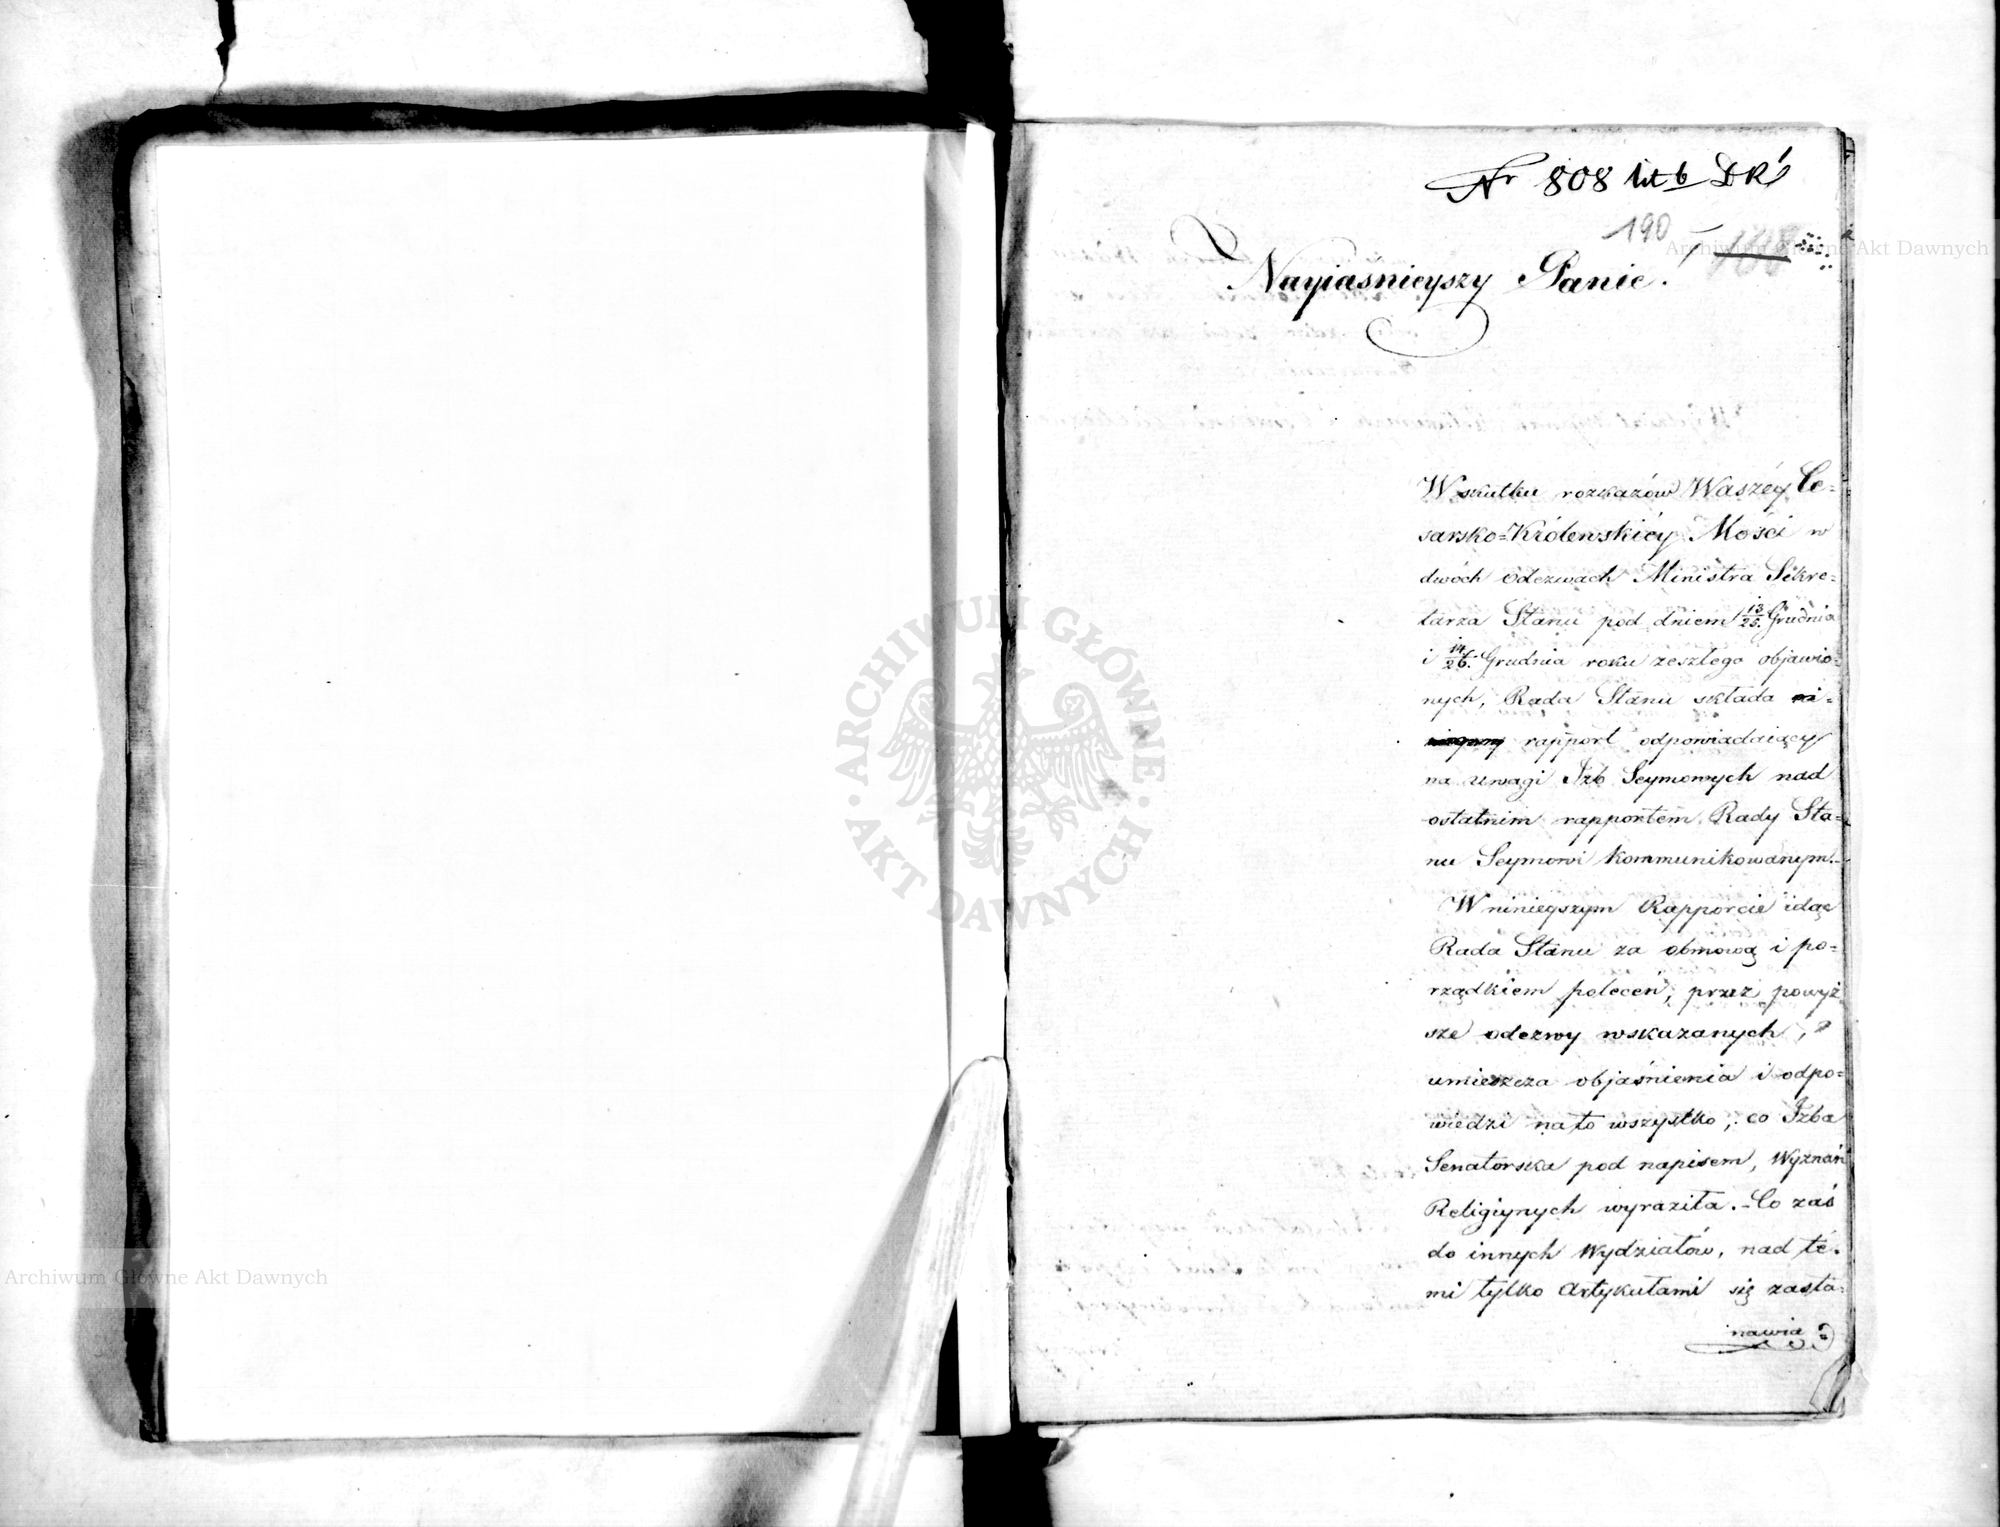 Nr 808 lit b DR
190
Nayiaśnieyszy Panie.
W skutku rozkazów Waszéy Ce=
sarsko=Królewskiéy Mości w
dwóch odezwach Ministra Sekre=
tarza Stanu pod dniem 13/25. Grudnia
i 14/26. Grudnia roku zeszłego objawio=
nych, Rada Stanu składa
rapport odpowiadaiący
na uwagi Izb Seymowych nad
ostatnim rapportem Rady Sta=
nu Seymowi kommunikowanym.-
W ninieyszym Rapporcie idąc
Rada Stanu za osnową i po=
rządkiem poleceń, przez powyż
sze odezwy wskazanych,
umieszcza objaśnienia i odpo=
wiedzi na to wszystko, co Izba
Senatorska pod napisem, Wyznań
Religiynych wyraziła.- Co zaś
do innych Wydziałów, nad té=
mi tylko Artykułami się zasta=
nawia
Archiwum Główne Akt Dawnych
Archiwum Główne Akt Dawnych
ARCHIWUM GŁÓWNE · AKT DAWNYCH ·